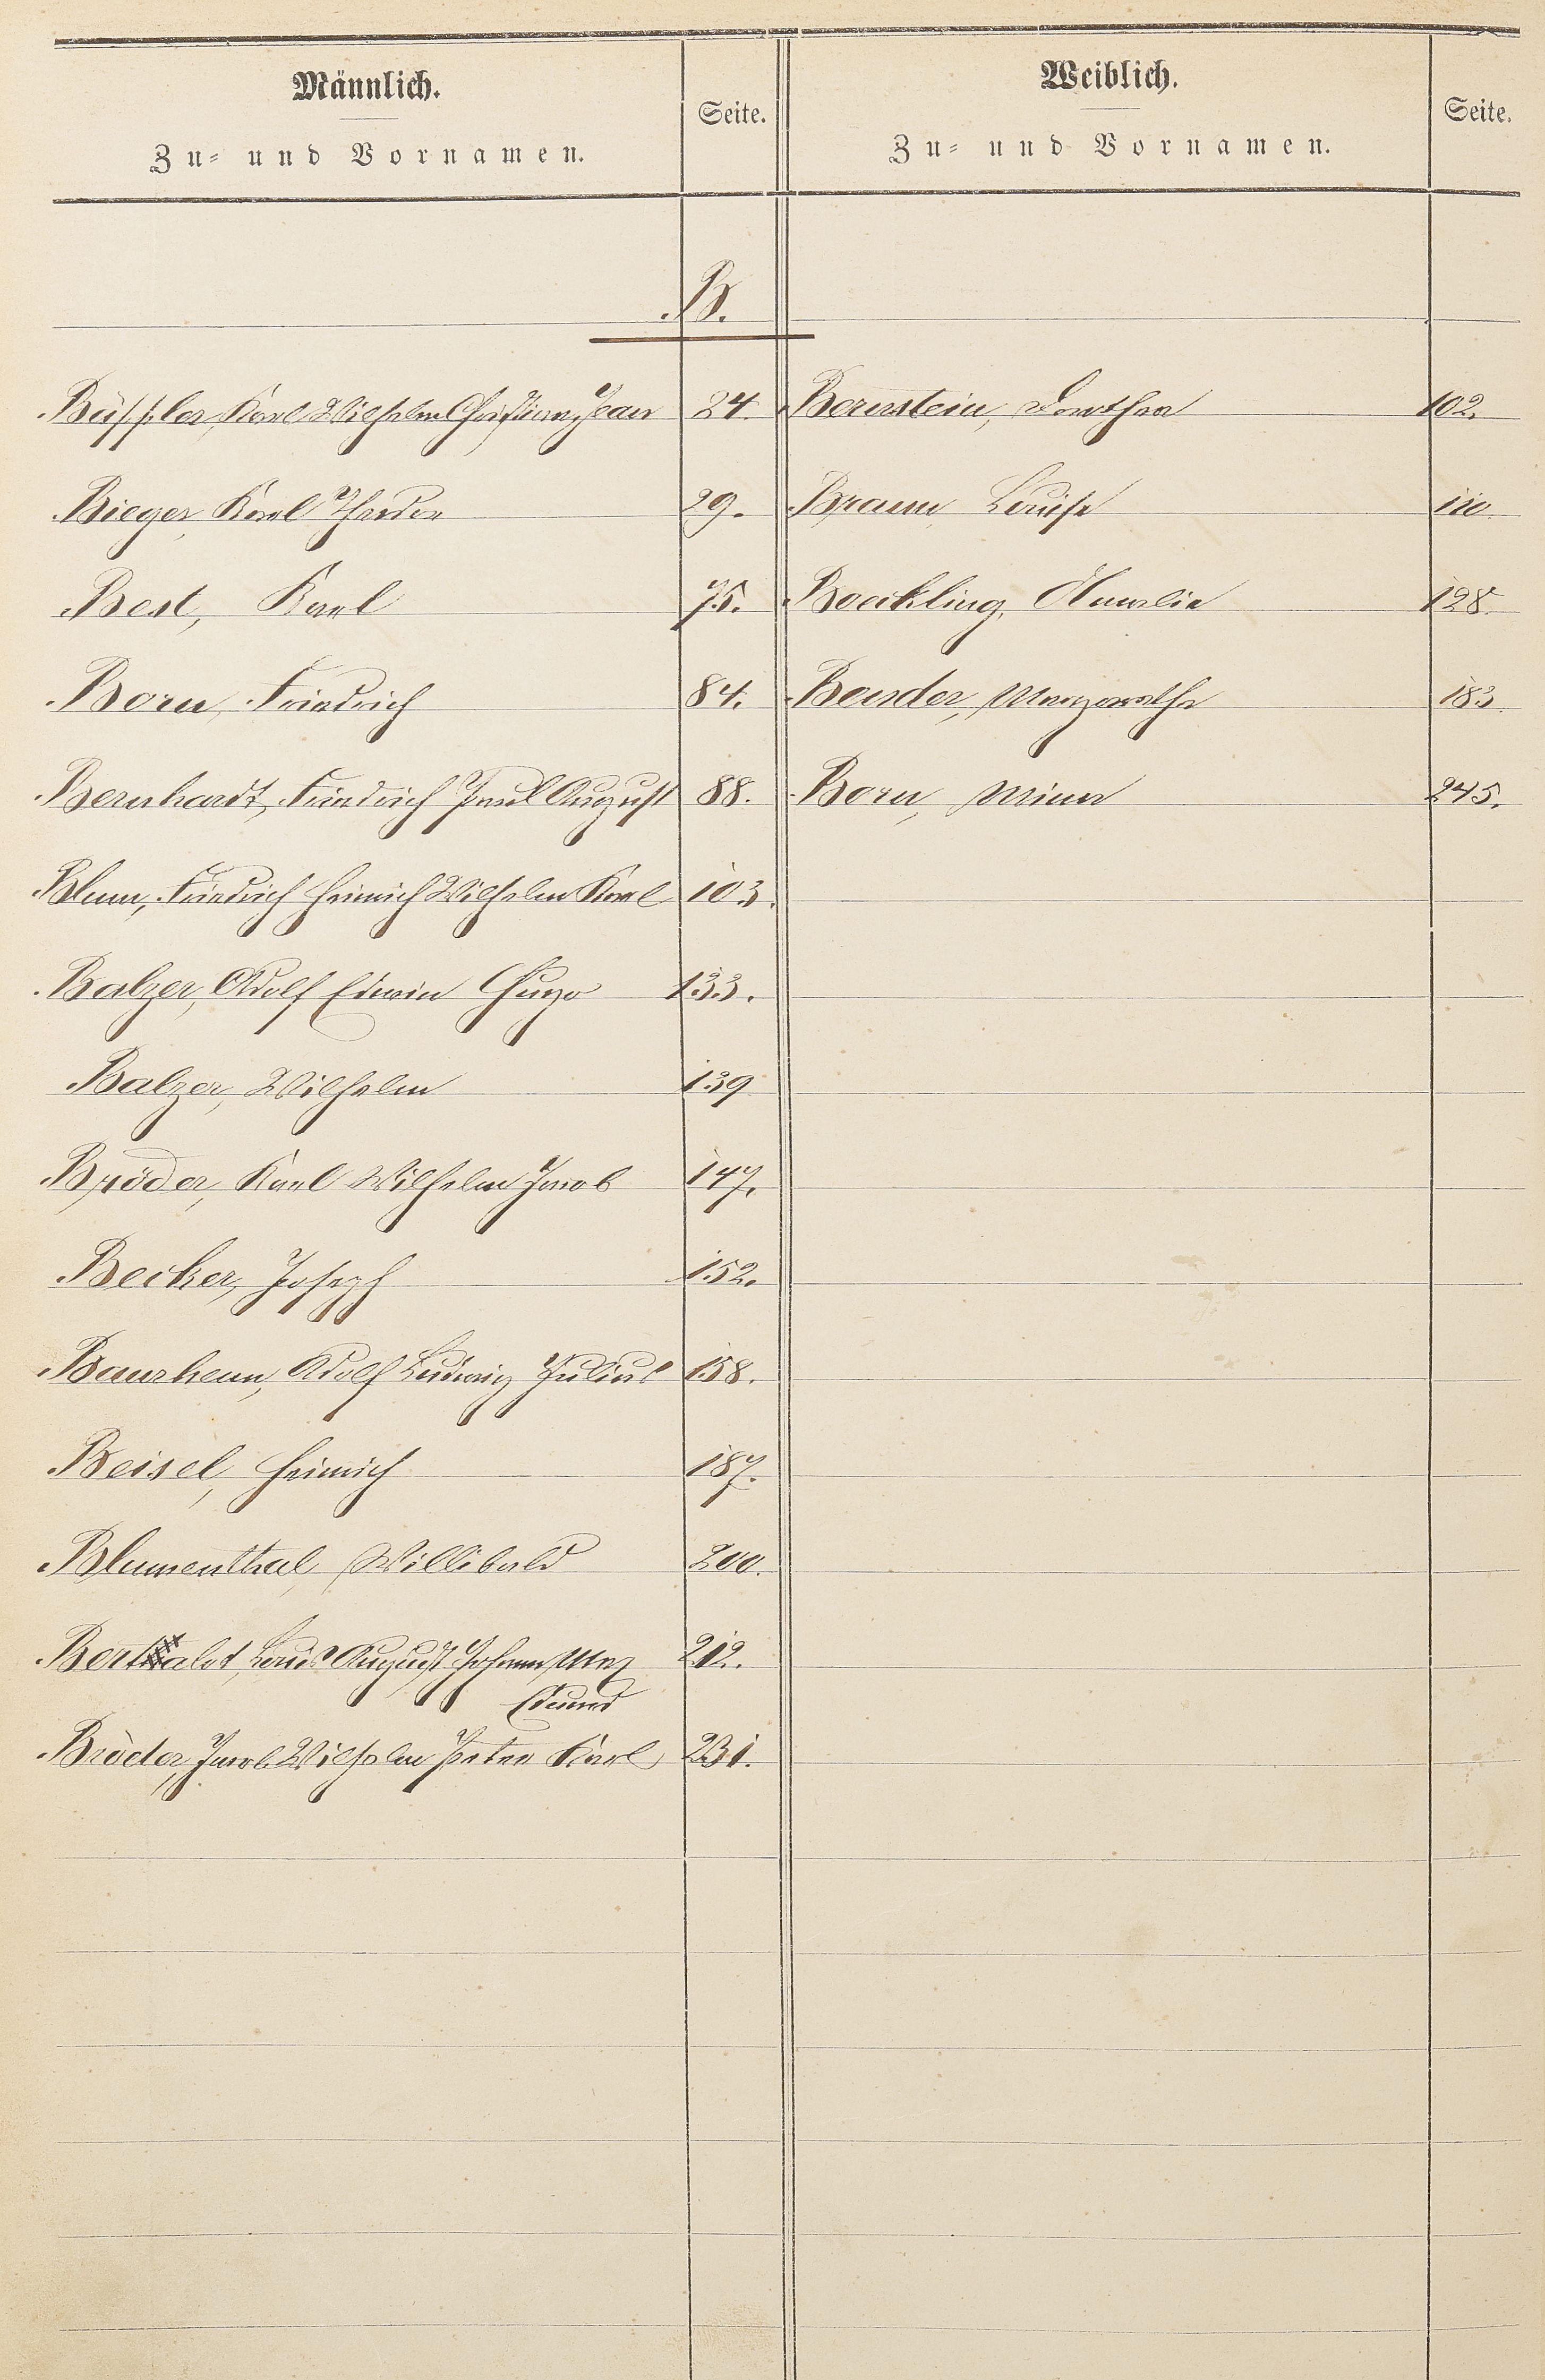 Männlich.
Zu- und Vornamen.
Seite.
Weiblich.
Zu- und Vornamen.
Seite.
B.
Karl Wilhelm Christian, Jean 24. Bernstein, Dorothea 102.
Bieger, Karl Theodor 29. Braun, Louise 110.
Best, Karl 75. Boeckling, Amalie 128.
Born, Friedrich 84. Bender, Margarethe 183.
Bernhardt, Friedrich Paul August 88. Born, Mina 245.
Blum, Friedrich Heinrich Wilhelm Karl 103.
Balzer, Adolf Edwin Hugo 133.
Balzer, Wilhelm 139
Bröder, Karl Wilhelm Jacob 147.
Becker, Joseph 152.
Baurhenn, Adolf Ludwig Julius 158.
Beisel, Heinrich 187.
Blumenthal, Willibald 200.
Bertalot, Louis August Johann Max 212.
Edmund
Bröder, Jacob Wilhelm Peter Karl 231.